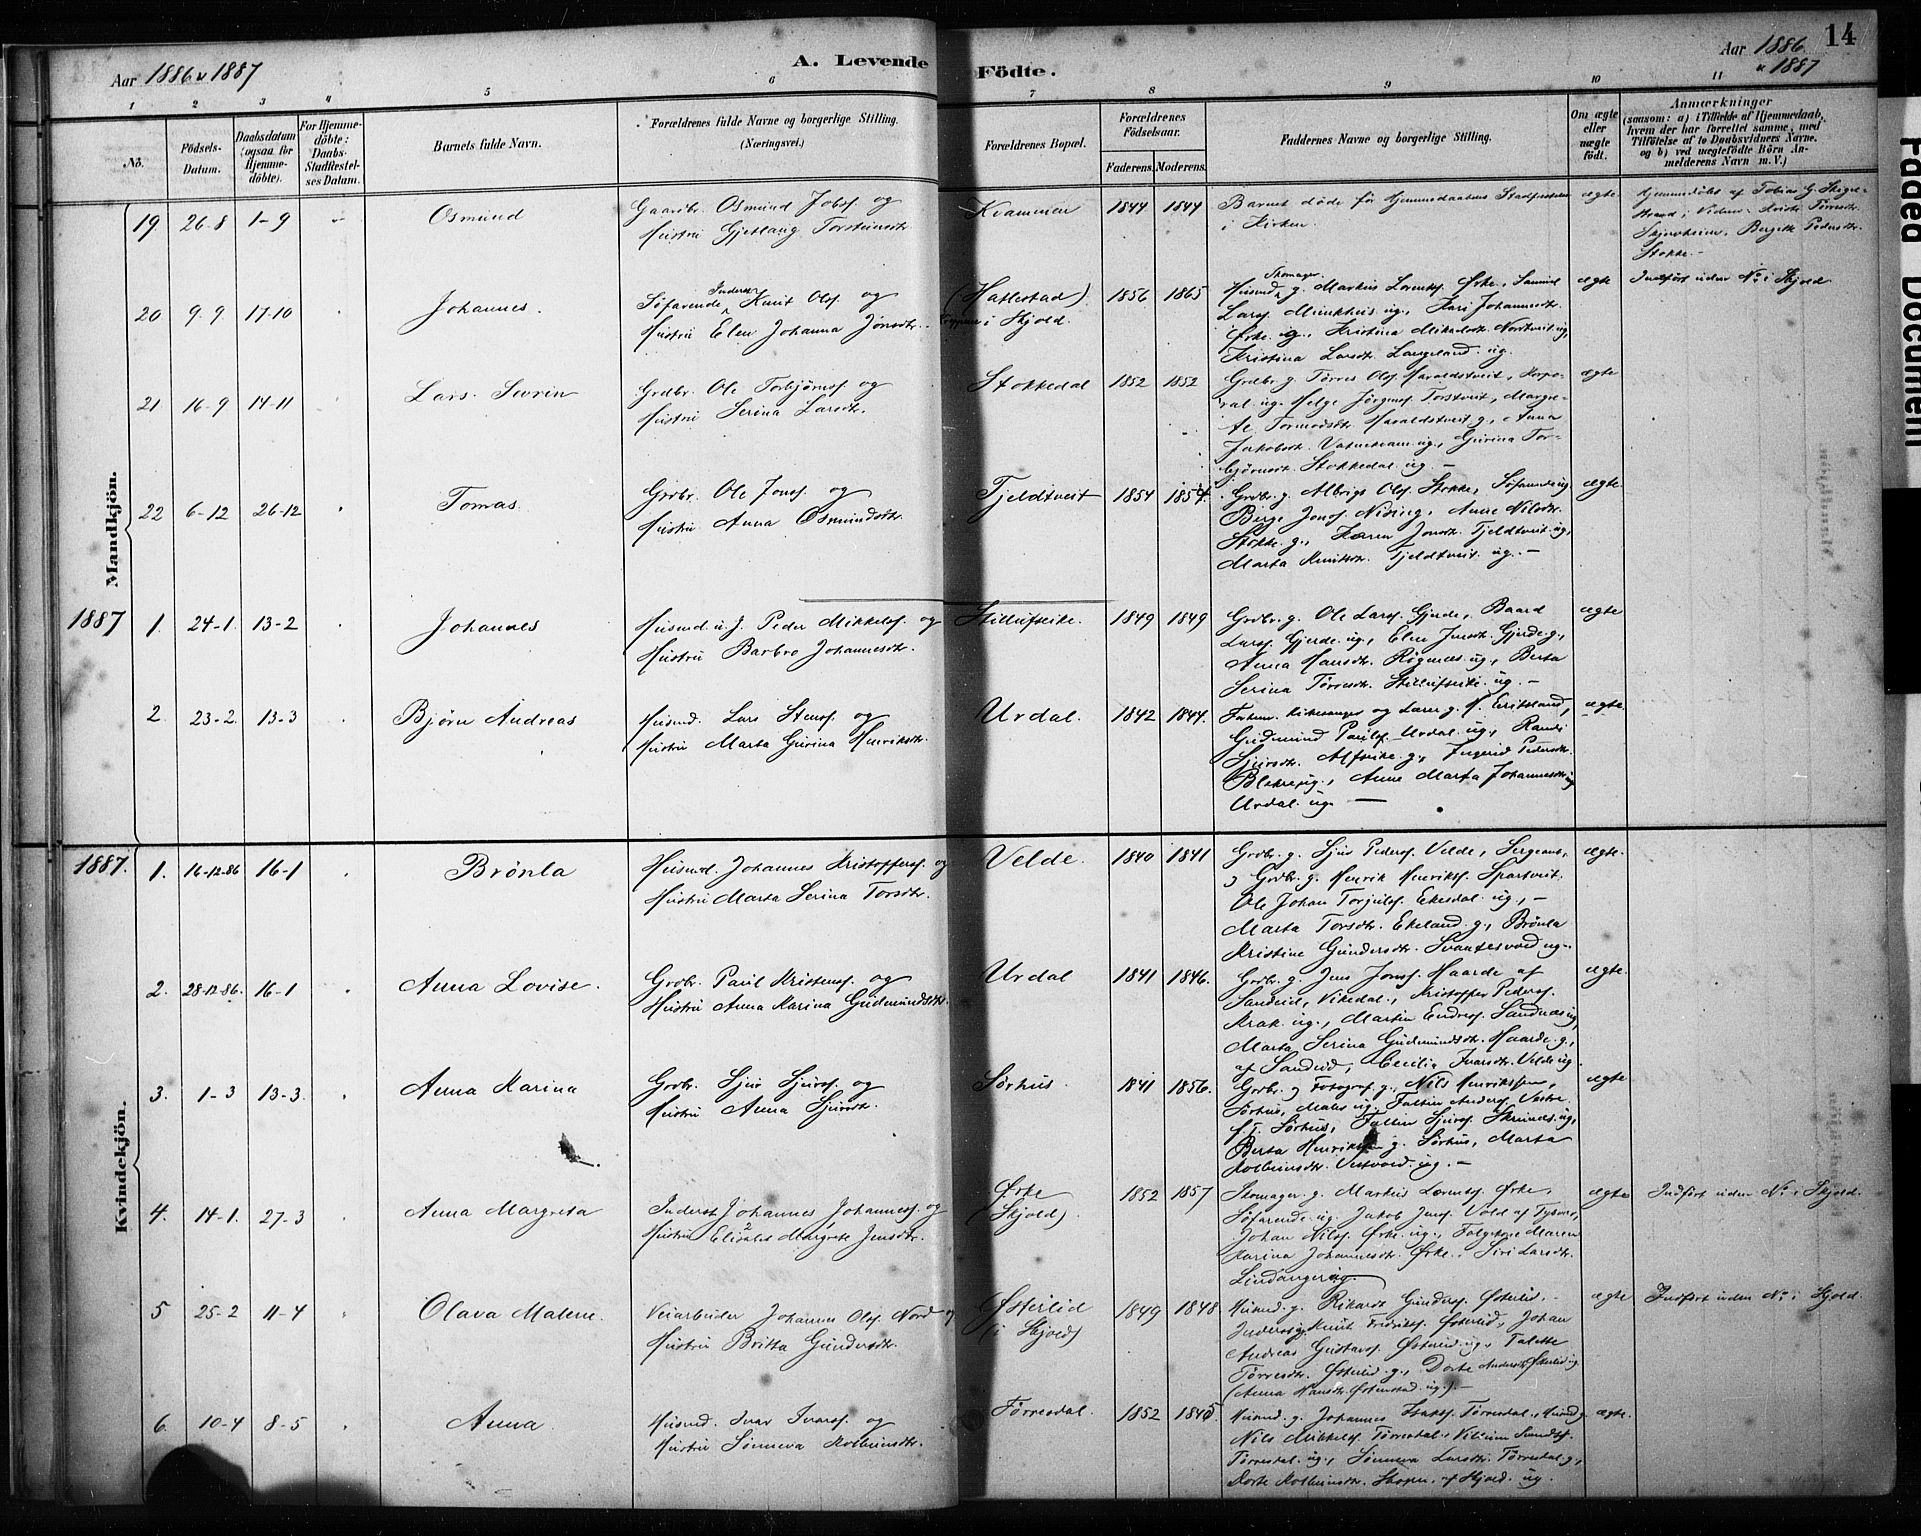 Aar 1886 & 1887
A. Levende Födte.
Aar 1886 & 1887
14
1 2 3 4 5 6 7 8 9 10 11
No.
Födsels-Datum.
Daabsdatum (ogsaa for Hjemme-döbte).
For Hjemme-döbte: Daabs-Stadfæstel-ses Datum.
Barnets fulde Navn.
Forældrenes fulde Navne og borgerlige Stilling. (Næringsvei.)
Forældrenes Bopæl.
Forældrenes Födselsaar.
Faderens. Moderens.
Faddernes Navne og borgerlige Stilling.
Om ægte eller uægte födt.
Anmærkninger
(saasom: a) i Tilfælde af Hjemmedaab, hvem der har forrettet samme, med Tilföielse af to Daabsvidners Navne. og b) ved uægtefödte Börn An-melderens Navn m. V.)
Mandkjön.
19 26-8 1-9 Osmund
Gaardbr. Osmund Jobss. og
Hustru Gjertaug Torsteinsdtr.
Kvammen 1844 1844
Barnet döde för Hjemmedaabens Stadfæstelse
i Kirken.
ægte
Hjemmedöbt af Tobias G. Skige-
strand; Vidner: Kristi Tørresdtr.
Skjerdheim, Bergitte Pedersdtr.
Stokke.
20 9-9 17-10 Johannes.
Søfarende Inderst Knut Olss. og
Hustru Elen Johanna Jonsdtr.
(Hatlestad) i Skjold. 1856 1865
Husmd. Skomager g. Markus Lorentss. Ørke, Samuel
Larss. Munkhus ug., Kari Johannesdtr.
Ørke ug., Kristina Mikalsdtr. Nordtveit ug,
Kristina Larsdtr. Langeland ug.
ægte
Indført uden No i Skjold
21 16-9 14-11 Lars Severin
Grdbr. Ole Torbjørnss. og
Hustru Serina Larsdtr.
Stokkedal 1852 1852
Grdbr. g. Tørres Olss. Haraldstveit, Korpo-
ral ug. Helge Jørgenss. Torstveit, Margre-
te Tormodsdtr. Haraldstveit g., Anna
Jakobsdtr. Vatnekvam ug., Gurina Tor-
bjørnsdtr. Stokkedal ug. —
ægte
22 6-12 26-12 Tomas
Grdbr. Ole Jonss. og
Hustru Anna Osmundsdtr.
Tjeldtveit 1854 1854.
Grdbr. g. Albrigt Olss. Stokke, Søfarende ug
Berge Jonss. Nising, Anne Nilsdtr.
Stokke g., Karen Jonsdtr. Tjeldtveit ug,
Marta Knutsdtr. Tjeldtveit ug. —
ægte
1887
1. 24-1. 13-2 Johannes
Husmd. u. J. Peder Mikkelss. og
Hustru Barbro Johannesdtr.
Stillufseike. 1849 1849
Grdbr. g. Ole Larss. Gjerde, Baard
Larss. Gjerde ug., Elen Jonsdtr. Gjerde g.,
Anna Hansdtr. Røgenes ug, Berta
Serina Tørresdtr. Stillufseike ug. —
ægte
2. 23-2. 13-3 Bjørn Andreas
Husmd. Lars Stenss. og
Hustru Marta Gurina Henriksdtr.
Urdal. 1842 1844.
Faderen. Kirkesanger og Lærer g. M. Eriksland,
Gudmund Paulss. Urdal ug, Randi
Sjursdtr. Alfseike g., Ingerid Pedersdtr.
Blekre ug., Anne Marta Johannesdtr.
Urdal ug. —
ægte
Kvindekjön.
1887. 1. 16-12-86 16-1 Brönla
Husmd. Johannes Kristofferss. og
Hustru Marta Serina Torsdtr.
Velde. 1840 1841
Grdbr. g. Sjur Pederss. Velde, Sergeant
og Grdbr. g. Henrik Henrikss. Spartveit,
Ole Johan Torjuls. Ekesdal ug., —
Marta Torsdtr. Ekeland g., Brönla
Kristine Gundersdtr. Svantesvold ug.
ægte.
2. 28-12-86. 16-1 Anna Lovise.
Grdbr. Paul Kristenss. og
Hustru Anna Karina Gudmundsdtr.
Urdal 1841 1846.
Grdbr. g. Jens Jonss. Haarde af
Sandeid, Vikedal, Kristoffer Pederss.
Krak ug., Martin Endress. Sandnæs ug,
Marta Serina Gudmundsdtr. Haarde g.,
af Sandeid, Cecilia Ivarsdtr. Velde ug
ægte.
3. 1-3 13-3. Anna Karina
Grdbr. Sjur Sjurss. og
Hustru Anna Sjursdtr.
Sørhus. 1841 1856.
Grdbr. og Fotograf g., Nils Henrikssen,
Sørhus, Maler ug. Faltin Anderss. Vestre,
p. T. Sørhus, Faltin Sjurss. Skrunes ug,
Berta g. Sørhus, Marta
Kolbeinsdtr. Vestvold ug. —
ægte
4. 14-1. 27-3 Anna Margreta
Inderst Johannes Johanness. og
Hustru Elisabet Margrete Jensdtr.
Ørke (Skjold) 1852 1857
Skomager g. Markus Lorentss. Ørke,
Søfarende ug. Jakob Jenss. Vold af Tysvær,
Johan Nilss. Ørke ug., Maren
Karina Johannesdtr. Ørke, Siri Larsdtr.
Lindanger ug.
ægte
Indført uden No i Skjold.
5 25-2 11-4 Olava Malene.
Veiarbeider Johannes Olss. Nord og
Hustru Britta Gundersdtr.
Østerlid (i Skjold) 1849 1848
Husmd. g. Rikard Gunderss. Østerlid, —
Inderst g. Knut Fredrikss. Østerlid, Johan
Andreas Gustavss. Østerlid ug., Talette
Tørresdtr. Østerlid g., Dorte Andersdtr. Østerlid ug
(Anna Hansdtr. Østenstad ug.) —
ægte
Indført uden No i Skjold.
6. 10-4 8-5 Anna
Husmd. Ivar Ivarss. og
Hustru Sönneva Kolbeinsdtr.
Tørresdal. 1852 1845
Husmd. g. Johannes Isakss. Tørresdal, Husmd g.
Nils Mikkelss. Tørresdal, Villum Amundss.
Tørresdal ug., Sönneva Larsdtr. Tørresdal g,
Dorte Kolbeinsdtr. Skogen af Skjold ug.
ægte.
Faded Document